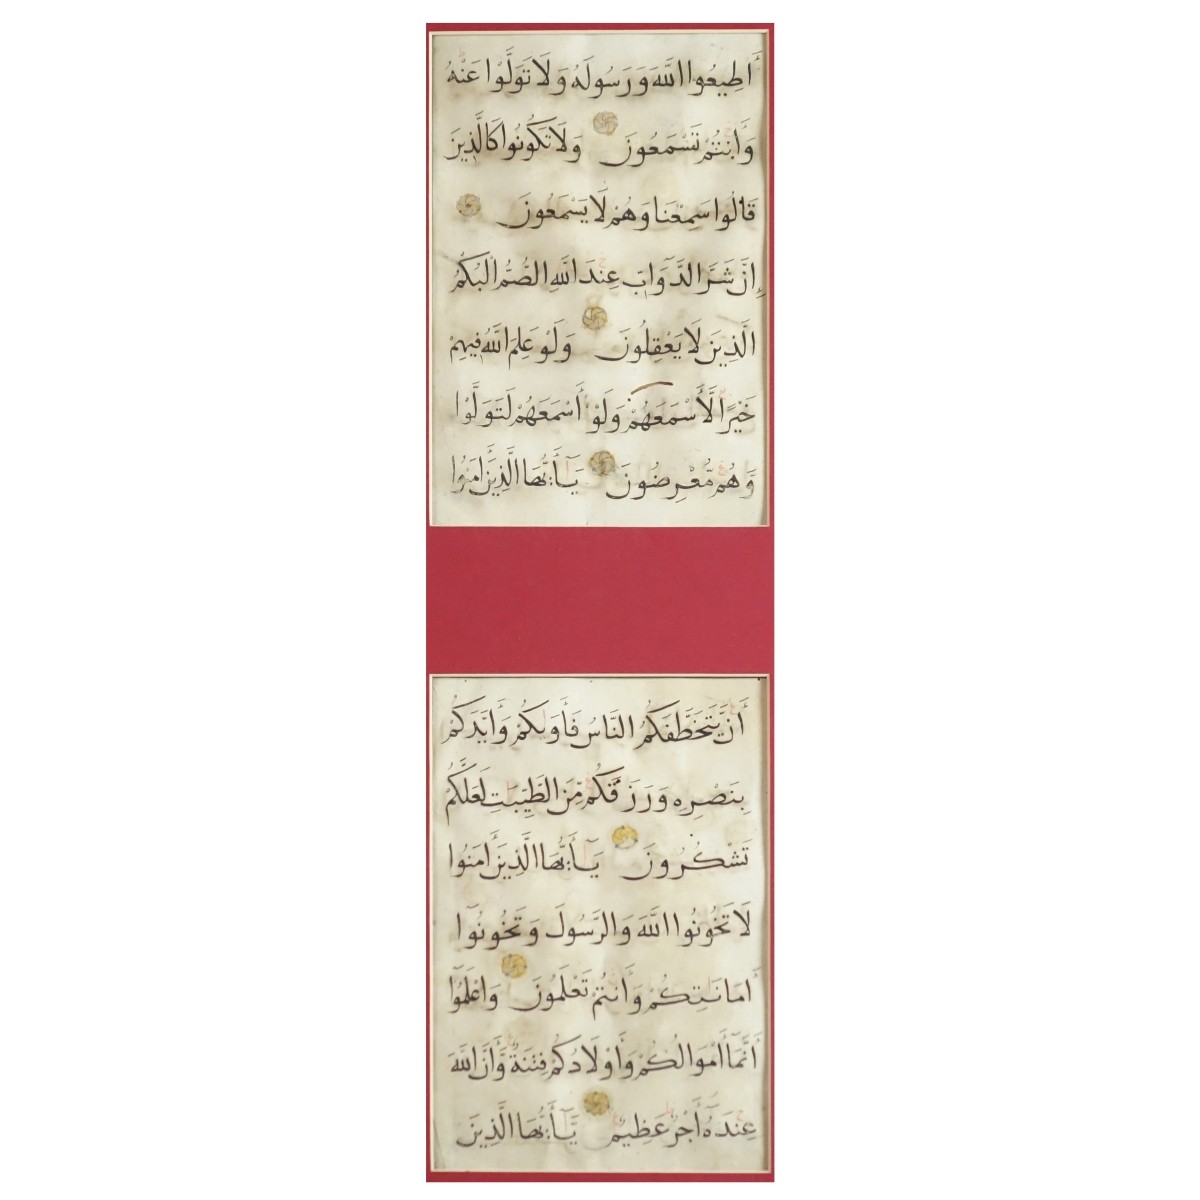 أَطِيعُوا اللَّهَ وَرَسُولَهُ وَلَا تَوَلَّوْا عَنْهُ
وَأَنْتُمْ تَسْمَعُونَ وَلَا تَكُونُوا كَالَّذِينَ
قَالُوا سَمِعْنَا وَهُمْ لَا يَسْمَعُونَ
إِنَّ شَرَّ الدَّوَابِّ عِنْدَ اللَّهِ الصُّمُّ الْبُكْمُ
الَّذِينَ لَا يَعْقِلُونَ وَلَوْ عَلِمَ اللَّهُ فِيهِمْ
خَيْرًا لَّأَسْمَعَهُمْ وَلَوْ أَسْمَعَهُمْ لَتَوَلَّوْا
وَهُمْ مُّعْرِضُونَ يَٰٓأَيُّهَا الَّذِينَ ءَامَنُوا
أَنْ يَّتَخَطَّفَكُمُ النَّاسُ فَـَٔاوَىٰكُمْ وَأَيَّدَكُمْ
بِنَصْرِهِ وَرَزَقَكُمْ مِّنَ الطَّيِّبَٰتِ لَعَلَّكُمْ
تَشْكُرُونَ يَٰٓأَيُّهَا الَّذِينَ ءَامَنُوا
لَا تَخُونُوا اللَّهَ وَالرَّسُولَ وَتَخُونُوٓا
أَمَانَٰتِكُمْ وَأَنْتُمْ تَعْلَمُونَ وَاعْلَمُوٓا
أَنَّمَآ أَمْوَالُكُمْ وَأَوْلَادُكُمْ فِتْنَةٌ وَّأَنَّ اللَّهَ
عِنْدَهُٓ أَجْرٌ عَظِيمٌ يَّٰٓأَيُّهَا الَّذِينَ